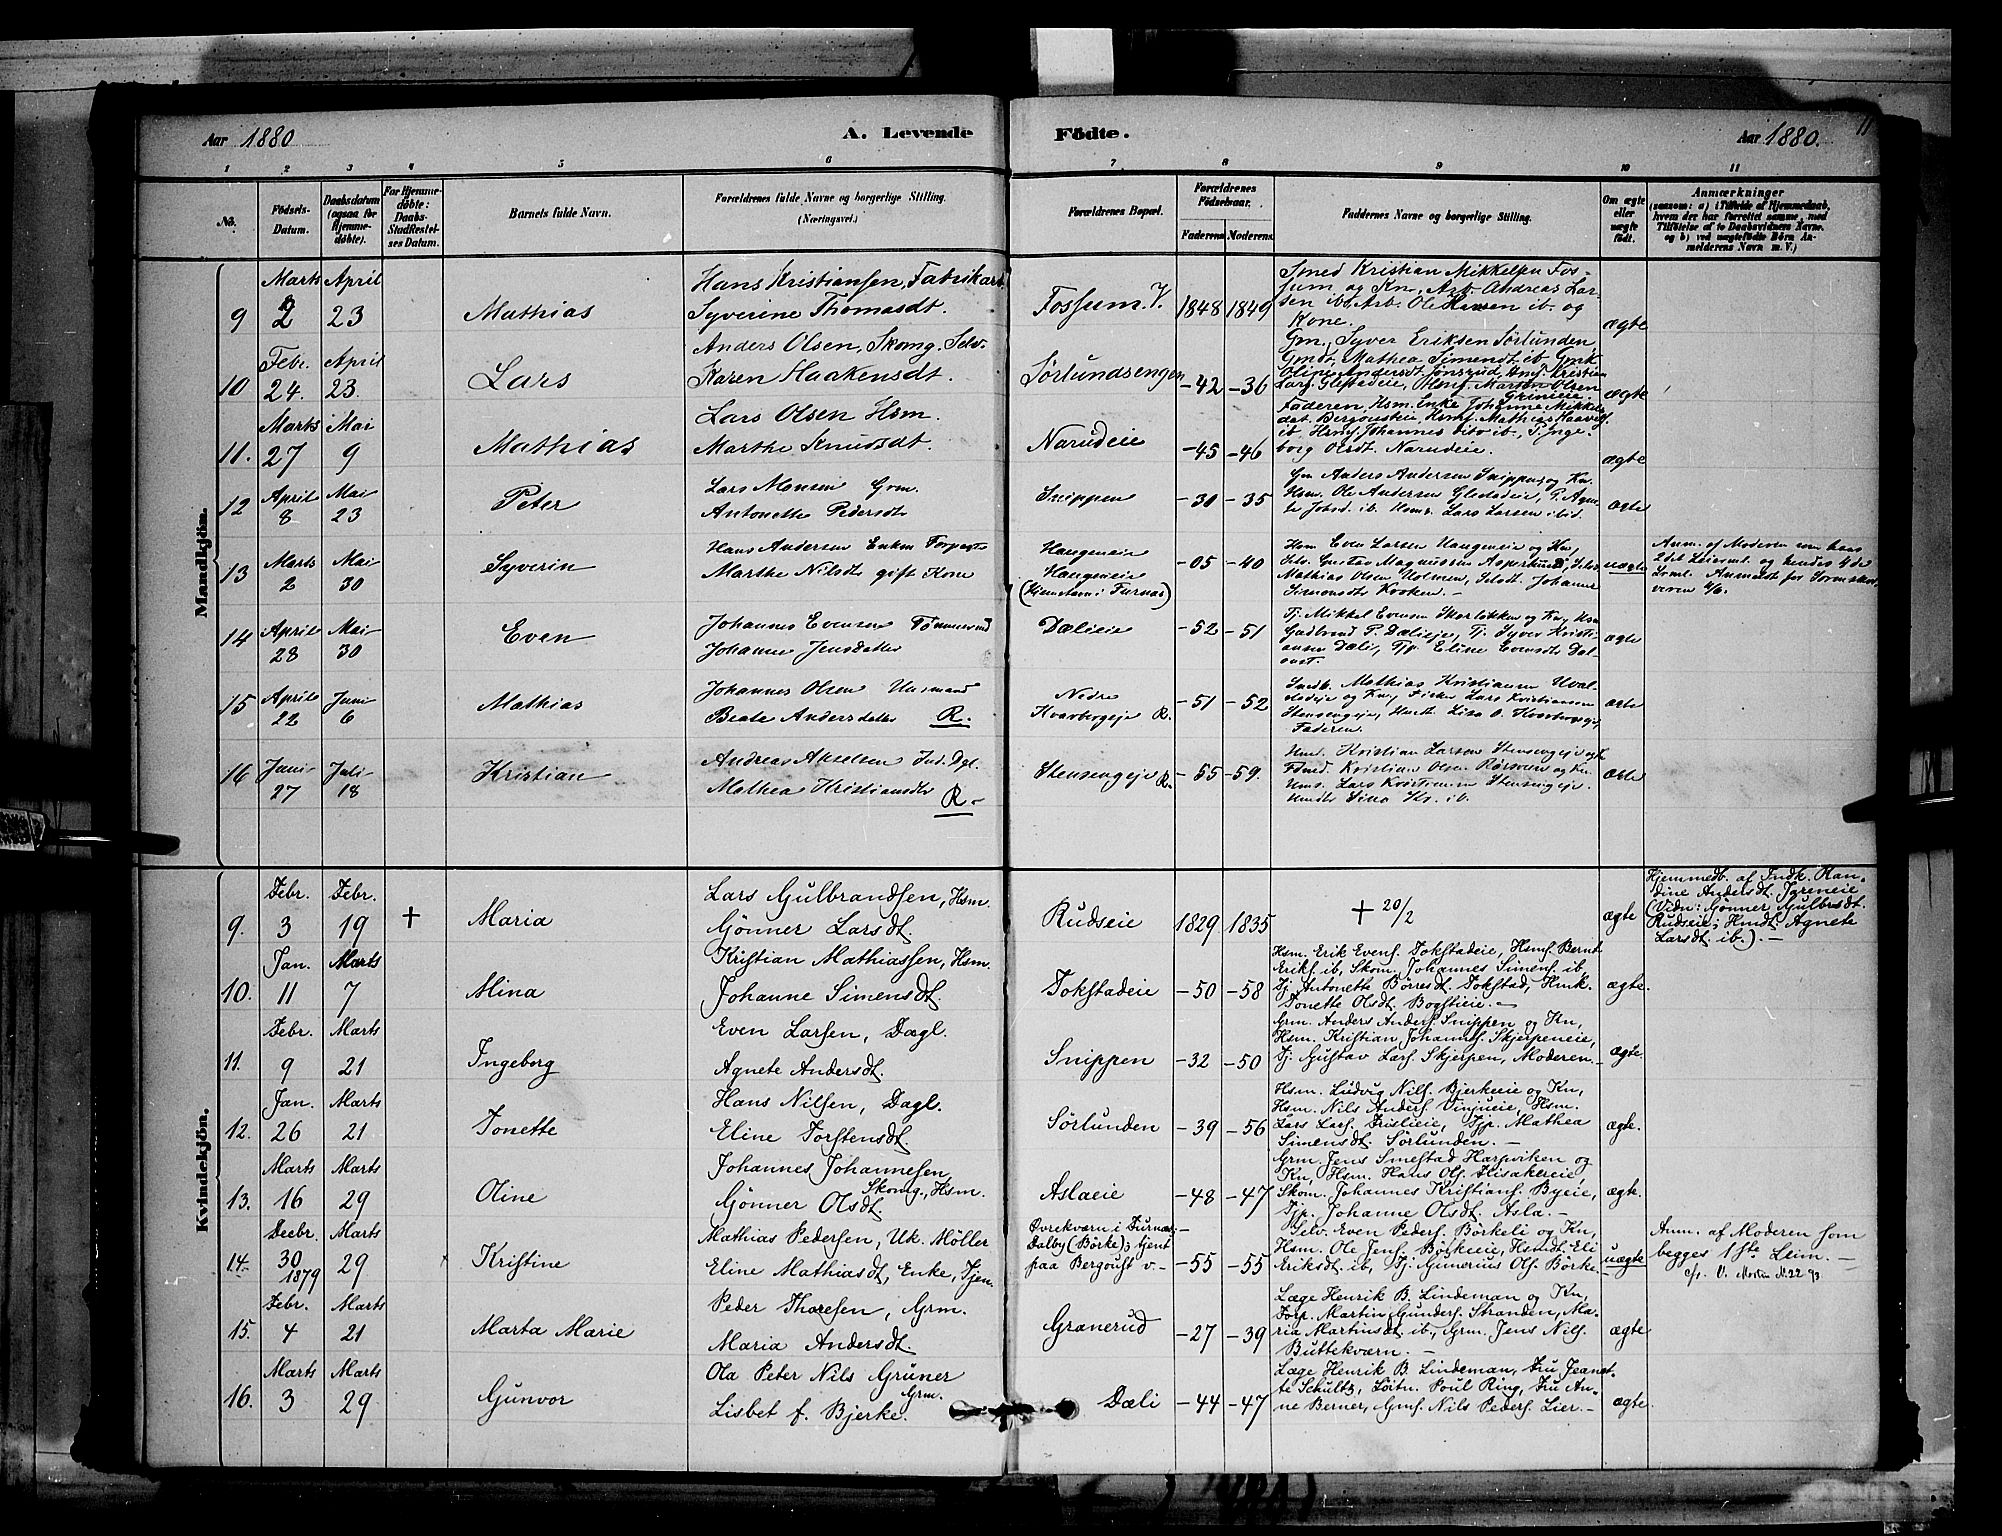 Aar 1880
A. Levende
Födte.
Aar 1880.
11
1 2 3 4 5 6 7 8 9 10 11
No.
Födsels-Datum.
Daabsdatum (ogsaa for Hjemmedöbte).
For Hjemmedöbte: Daabs-Stadfæstelses Datum.
Barnets fulde Navn.
Forældrenes fulde Navne og borgerlige Stilling. (Næringsvei.)
Forældrenes Bopæl.
Forældrenes Födselsaar.
Faderens Moderens
Faddernes Navne og borgerlige Stilling.
Om ægte eller uægte födt.
Anmærkninger
(saasom: a) i Tilfælde af Hjemmedaab, hvem der har forrettet samme, med Tilföielse af to Daabsvidners Navne, og b) ved uægtefödte Börn Anmelderens Navn m. V.)
Mandkjön.
9 Marts 2 April 23 Mathias
Hans Kristiansen, Fabrikarb.
Syverine Thomasdt.
Fossum. V. 1848 1849
Smed Kristian Mikkelsen Fos-
sum og Kn, Arb. Andreas Lar-
sen ib, Arb. Ole Hansen ib. og
Kone.
ægte
10 Febr. 24. April 23. Lars
Anders Olsen, Skomg. Selv.
Karen Haakensdt.
Sørlundsengen -42 -36
Gm. Syver Eriksen Sørlunden
Gmdr. Mathea Simensdt ib. Gmk
Oline Andersdt. Jønsrud, Hmf. Kristian
Lars. Glestadeie, Olsmf Marten Olsen
Grinieie.
ægte
11. Marts 27 Mai 9 Mathias
Lars Olsen Hsm.
Marthe Knudsdt.
Narudeie -45 -46
Faderen, Hsm. Enke Johanne Mikkels
dat. Bergousteie, Hsmf Mathias Haavelf.
ib, Hsmf. Johannes ib, P. Inge-
borg Olsdt. Narudeie.
ægte
12 April 8 Mai 23 Peter
Lars Monsen Grm.
Antonette Pedersdt
Snippen -30 -35
Gm Anders Andersen Snippen og Kn.
Hsm. Ole Andersen Glestadeie, P. Agne-
te Johsd. ib. Hsmf. Lars Larsen ibid.
ægte
13 Marts 2 Mai 30 Syverin
Hans Andersen Enkm
Marthe Nilsdt gift Kone
Haugeneie
Haugeneie
(Hjemstavn i Furnæs)
-05 -40
Hsm Even Larsen Haugeneie og Kn,
Selv. Gustav Magnussen Aspelund, Selv
Mathias Olsen Holmen, Selvdt Johanne
Simonsdt Kroken. -
uægte
Anm. af Moderen som hans
2det Leierml. og hendes 4de
Lrml. Anmeldt for
14 April 28 Mai 30 Even
Johannes Evensen Tømmermd
Johanne Jensdatter
Dælieie -52 -51
Tj. Mikkel Evensen Skarløkken og Kn, Hsm
Gudbrand P. Dælieje, Tj. Syver Kristi-
ansen Dæli, Tjp Eline Evensdt
ægte
15 April 22 Juni 6 Mathias
Johannes Olsen Husmand
Beate Andersdatter R.
Nedre
Kvarbergeje R. -51 -52
Indb. Mathias Kristiansen
og Kn, Lars Kristiansen
Stensengeje, Lisa O. Kvarbergeje,
Faderen.
ægte
16 Juni 27 Juli 18 Kristian
Andreas Axelsen Ind. Dgl.
Mathea Kristiansdtr R.
Stensengeje R. -55 -59.
Hsm. Kristian Larsen Stensengeje og K
Kristian Olsen og Kn.
Hsms. Lars Kristiansen Stensengeje.
Sina Kr. ib.
ægte
Kvindekjön.
9. Febr. 3 Febr. 19 + Maria
Lars Gulbrandsen, Hsm.
Gönner Larsdt.
Rudseie 1829 1835
+ 20/2
ægte
Hjemmedb. af Indk. Kan-
dine Andersdt. Igreneie
(Vidn: Gönner Gulbrsdt.
Rudseie; Hmdt. Agnete
Larsdt. ib.). -
10. Jan. 11 Marts 7 Mina
Kristian Mathiassen, Hsm.
Johanne Simensdt.
Tokstadeie -50 -58
Hsm. Erik Evens. Tokstadeie, Hsmf. Bernt
Eriks. ib, Skom. Johannes Simens. ib,
Tj. Antonette Börresdt. Tokstad, Hmk.
Tonette Olsdt. Bogstieie. -
ægte.
11. Febr. 9 Marts 21 Ingeborg
Even Larsen, Dagl.
Agnete Andersdt.
Snippen -32 -50
Grm. Anders Anders. Snippen og Kn,
Hsm. Kristian Johanns. Skjerpeneie,
Tj. Gustav Lars. Skjerpen, Moderen.
ægte.
12. Jan. 26 Marts 21 Tonette
Hans Nilsen, Dagl.
Eline Torstensdt.
Sörlunden -39 -56
Hsm. Ludvig Nils. Bjerkeie og Kn,
Hsm. Nils Anders. Vinjueie, Hsm.
Lars Lars. Frislieie, Tjp. Mathea
Simensdt. Sörlunden. -
ægte.
13. Marts 16 Marts 29 Oline
Johannes Johannesen
Skomg., Hsm.
Gönner Olsdt.
Aslaeie -48 -47
Grm. Jens Smestad Harpviken og
Kn, Hsm. Hans Ols. Fisakereie,
Skom. Johannes Kristians. Byeie,
Tjp. Johanne Olsdt. Asla. -
ægte.
14. Decbr. 30 1879 Marts 29 Kristine
Mathias Pedersen, Uk. Möller
Eline Mathiasdt, Enke, Tjen.
Övrekværn i Furnæs. -
Dalby (Börke); tjent
paa Bergoust v. -
-55 -55
Selv. Even Peders. Börkeli og Kn,
Hsm. Ole Jens. Börkeeie, Hsmdt. Eli
Eriksdt. ib, Tj. Gunerius Ols. Börke.
uægte
Anm. af Moderen som
begges 1ste Leim. -
15. Febr. 4 Marts 21 Marta Marie
Peder Thoresen, Grm.
Maria Andersdt.
Granerud -27 -39
Læge Henrik B. Lindeman og Kn,
Forp. Martin Gunders. Stranden, Ma-
ria Martinsdt ib., Grm. Jens Nils.
Buttekværn. -
ægte
16. Marts 3 Marts 29 Gunvor
Ola Peter Nils Grüner
Grm.
Lisbet f. Bjerke.
Dæli -44 -47
Læge Henrik B. Lindeman, Fru Jeanet-
te Schultz, Löitn. Poul Ring, Fru An-
ne Berner, Gmf. Nils Peders. Lier. -
ægte.